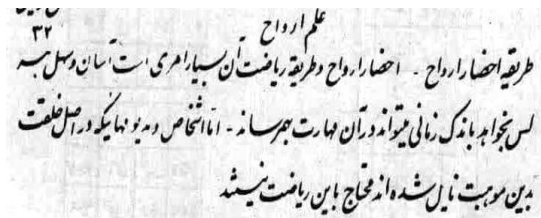 علم ارواح
۳۲
طریقه احضار ارواح - احضار ارواح و طریقه ریاضت آن بسیار امری است آسان و سهل هر
کس بخواهد باندک زمانی میتواند در آن مهارت بهمرساند - اما اشخاص و مدیومهائیکه در اصل خلقت
بدین موهبت نایل شده اند محتاج باین ریاضت نیستند